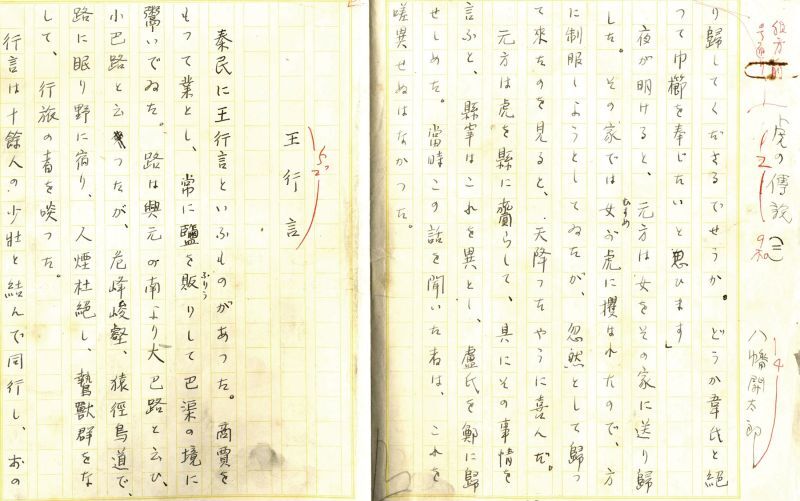 虎の傳說(二)
八幡關太郎
り歸してくださるでせうか。どうか韋氏と絕
つて巾櫛を奉じたいと思ひます」
夜が明けると、元方は女をその家に送り歸
した。その家では女が虎に攫はれたので、方
むすめ
に制服しようとしてゐたが、忽然として歸つ
て來たのを見ると、天降つたやうに喜んだ。
元方は虎を縣に齎らして、具にその事情を
言ふと、縣宰はこれを異とし、盧氏を鄭に歸
せしめた。當時この話を聞いた者は、これを
嗟異せぬはなかつた。
王行言
秦民に王行言といふものがあつた。商賈を
もつて業とし、常に鹽を販りして巴渠の境に
ぶりう
鬻いでゐた。路は興元の南より大巴路と云ひ、
小巴路と云つたが、危峰峻壑、猿徑鳥道で、
路に眠り野に宿り、人煙杜絕し、鷙獸群をな
して、行旅の者を啖つた。
行言は十餘人の少壯と結んで同行し、おの